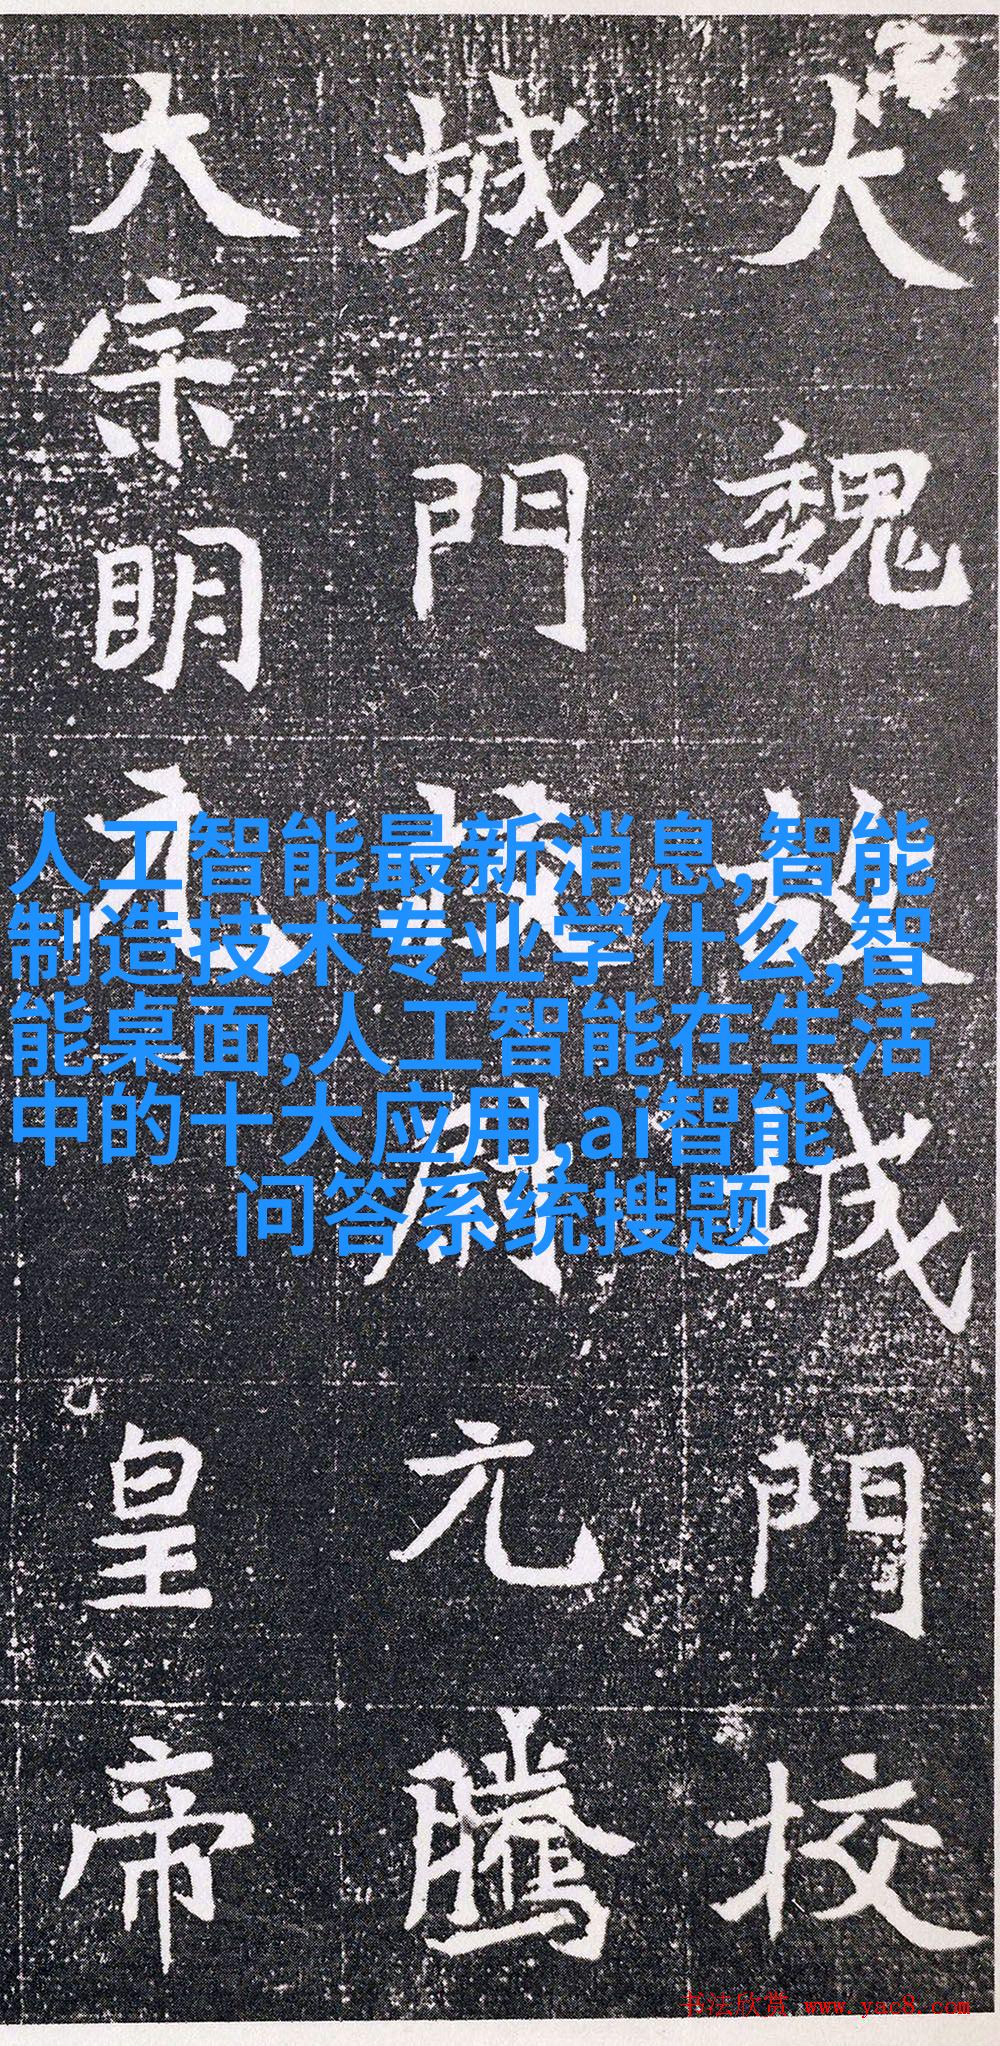 大魏故城門校
城門校尉元騰
大宗明元皇帝
人工智能最新消息,智能
制造技术专业学什么,智
能桌面,人工智能在生活
中的十大应用,ai智能
问答系统搜题
书法欣赏 www.yac8.com